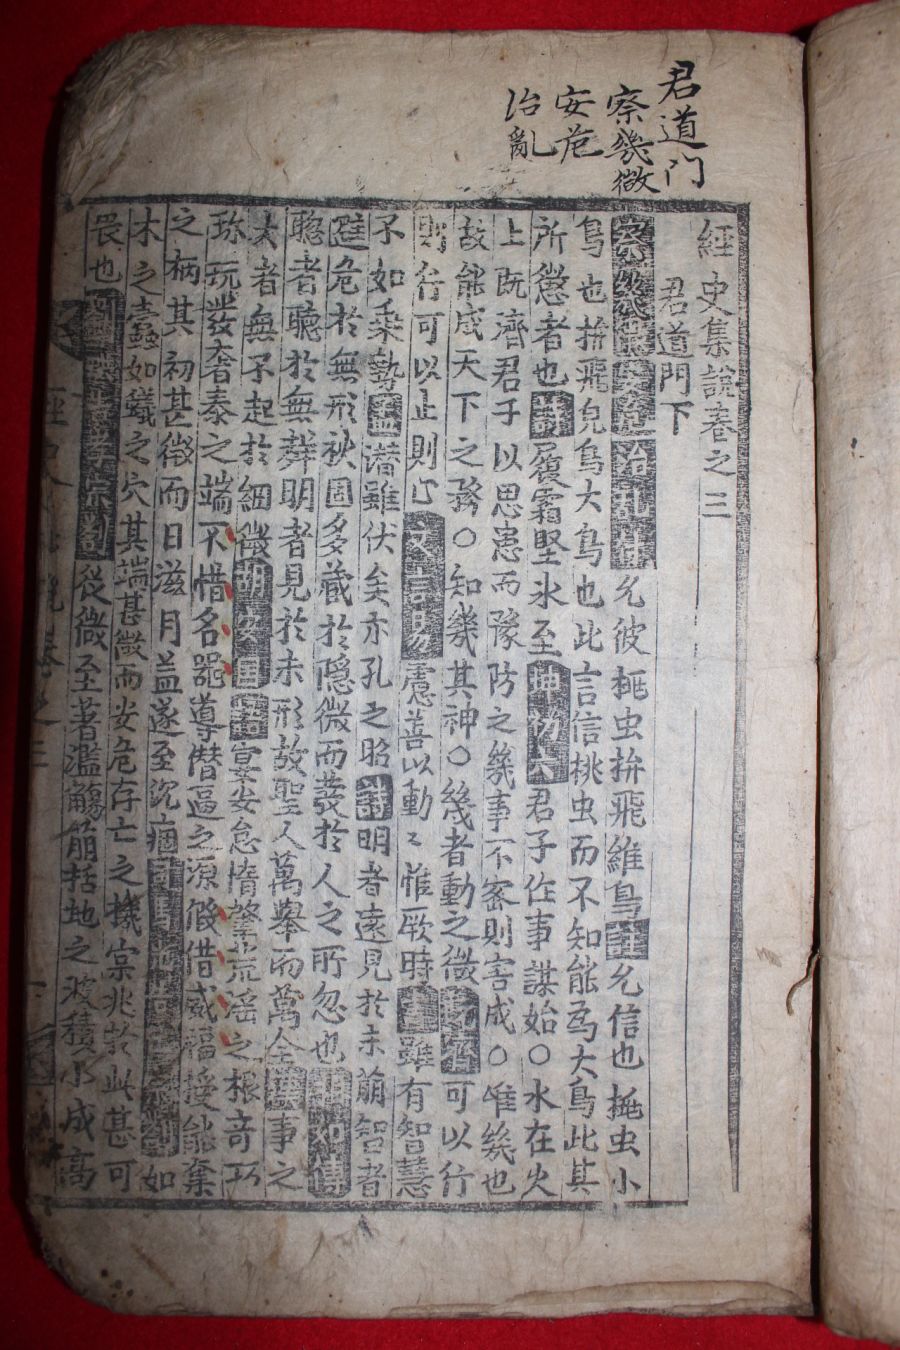 君道门
察幾微
安危
治亂
經史集說卷之三
君道門下
察幾微 安危 治亂 允彼桃虫拚飛維鳥註允信也桃虫小
鳥也拚飛皃鳥大鳥也此言信桃虫而不知能爲大鳥此其
所懲者也 履霜堅氷至 君子作事謀始○水在火
上旣濟君子以思患而豫防之幾事不密則害成○唯幾也
故能成天下之務○知幾其神○幾者動之微 可以行
則行可以止則止 慮善以動〻惟厥時 雖有智慧
不如乘勢孟潛雖伏矣亦孔之昭詩明者遠見於未萌智者
避危於無形禍固多藏於隱微而發於人之所忽也
聰者聽於無聲明者見於未形故聖人萬擧而萬全 事之
大者無不起於細微胡安国 宴安怠惰肇荒淫之根奇巧
珎玩發奢泰之端不惜名器導僭逼之源假借威福授能棄
之柄其初甚微而日滋月益遂至沉痼 如
木之蠹如蟻之穴其端甚微而安危存亡之機寔兆於此甚可
畏也 從微至著濫觴萠括地之波積小成高